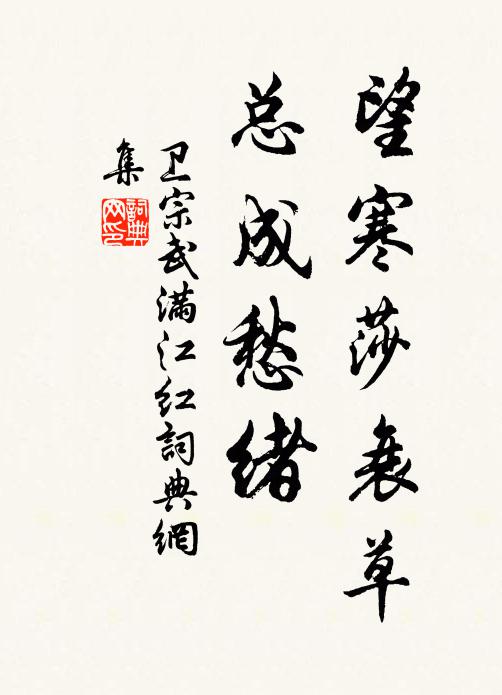 望寒莎衰草
总成愁绪
卫宗武满江红词典網
集
詞典網印